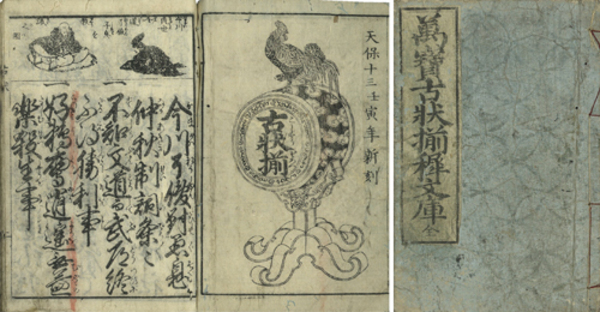 萬寶古狀揃稺文庫 全
天保十三壬寅年新刻
古狀揃
今川了俊對愚息
仲秋制詞条々
一不知文道而武道終
不得勝利事
一好鵜鷹逍遥無益
樂殺生事